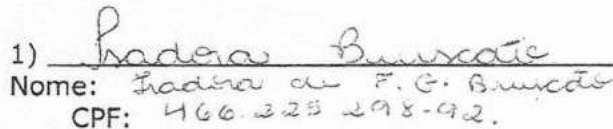 1) Isadora Bruscato
Nome: Isadora de F. G. Bruscato
CPF: 466.225 298-92.